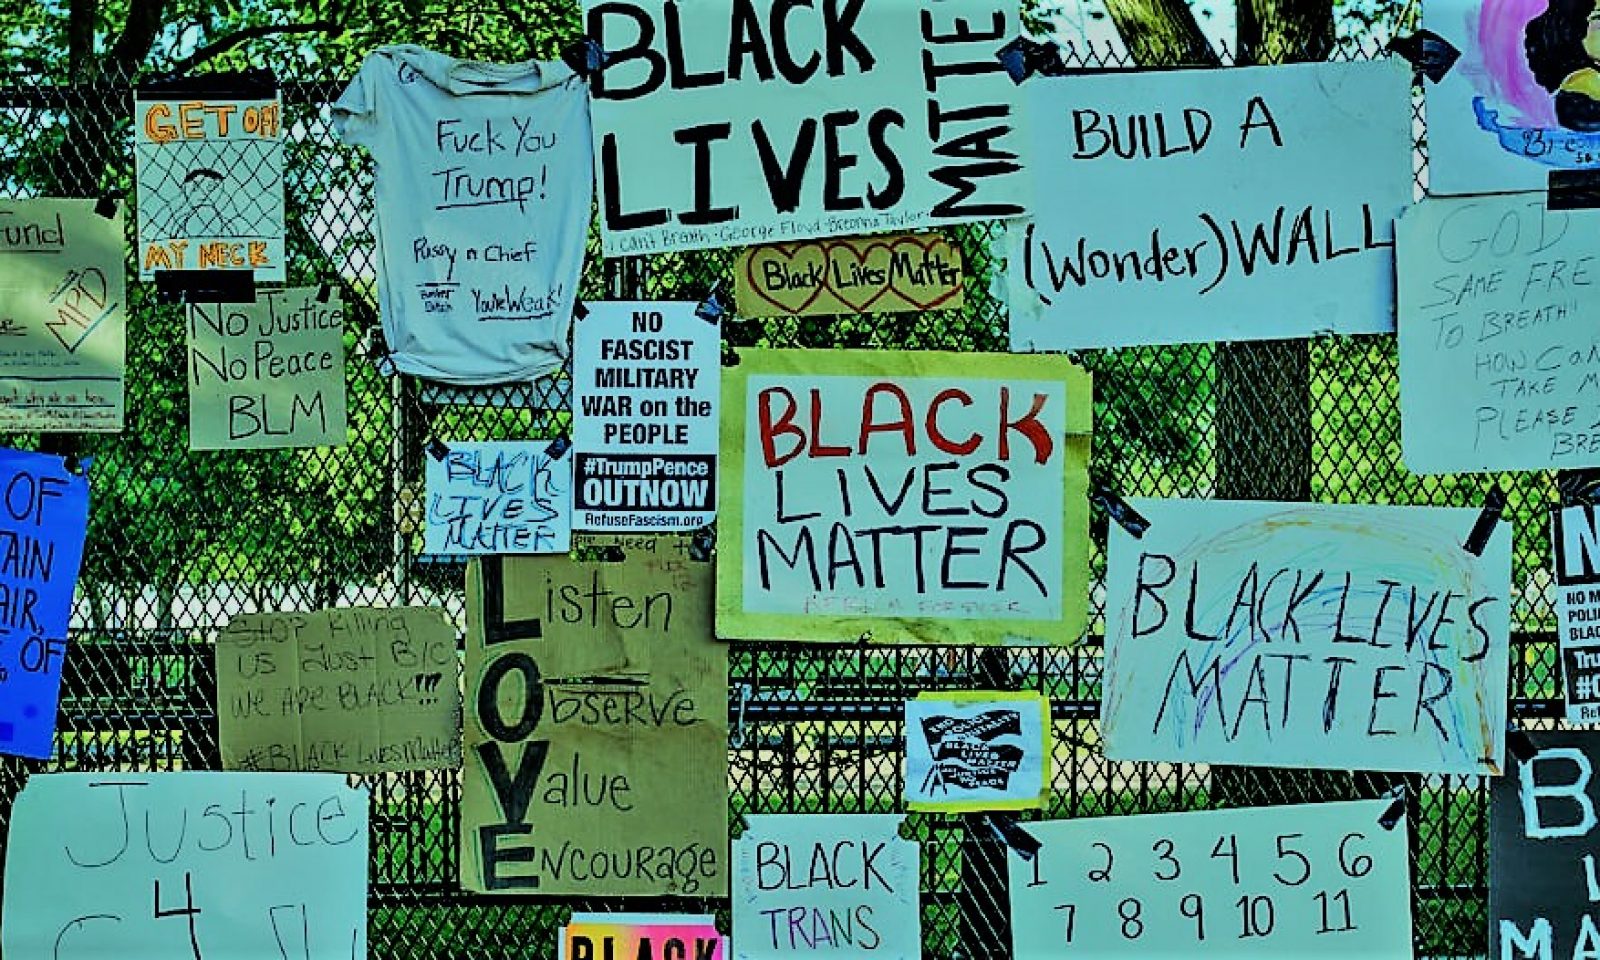 GET OFF
MY NECK
Fuck You
Trump!
Pussy n Chief
Bunker
Bitch
You're Weak!
BLACK
LIVES
MATTER
I Can't Breath - George Floyd - Breonna Taylor
BUILD A
(Wonder)WALL
GOD
SAME FRE
TO BREATH"
HOW CAN
TAKE M
PLEASE
BRE
Fund
MPD
No Justice
No Peace
BLM
NO
FASCIST
MILITARY
WAR on the
PEOPLE
#TrumpPence
OUTNOW
RefuseFascism.org
Black Lives Matter
BLACK
LIVES
MATTER
BLACK
LIVES
MATTER
BLACK LIVES
MATTER
OF
TAIN
AIR,
OF
STOP Killing
US Just B/C
We ARE BLACK!!!
#BLACK Lives Matter
Need
Listen
Observe
Value
Encourage
Justice
4
BLACK
TRANS
BLACK
1 2 3 4 5 6
7 8 9 10 11
NO M
POLI
BLAC
Tru
#O
Ref
B
L
MA